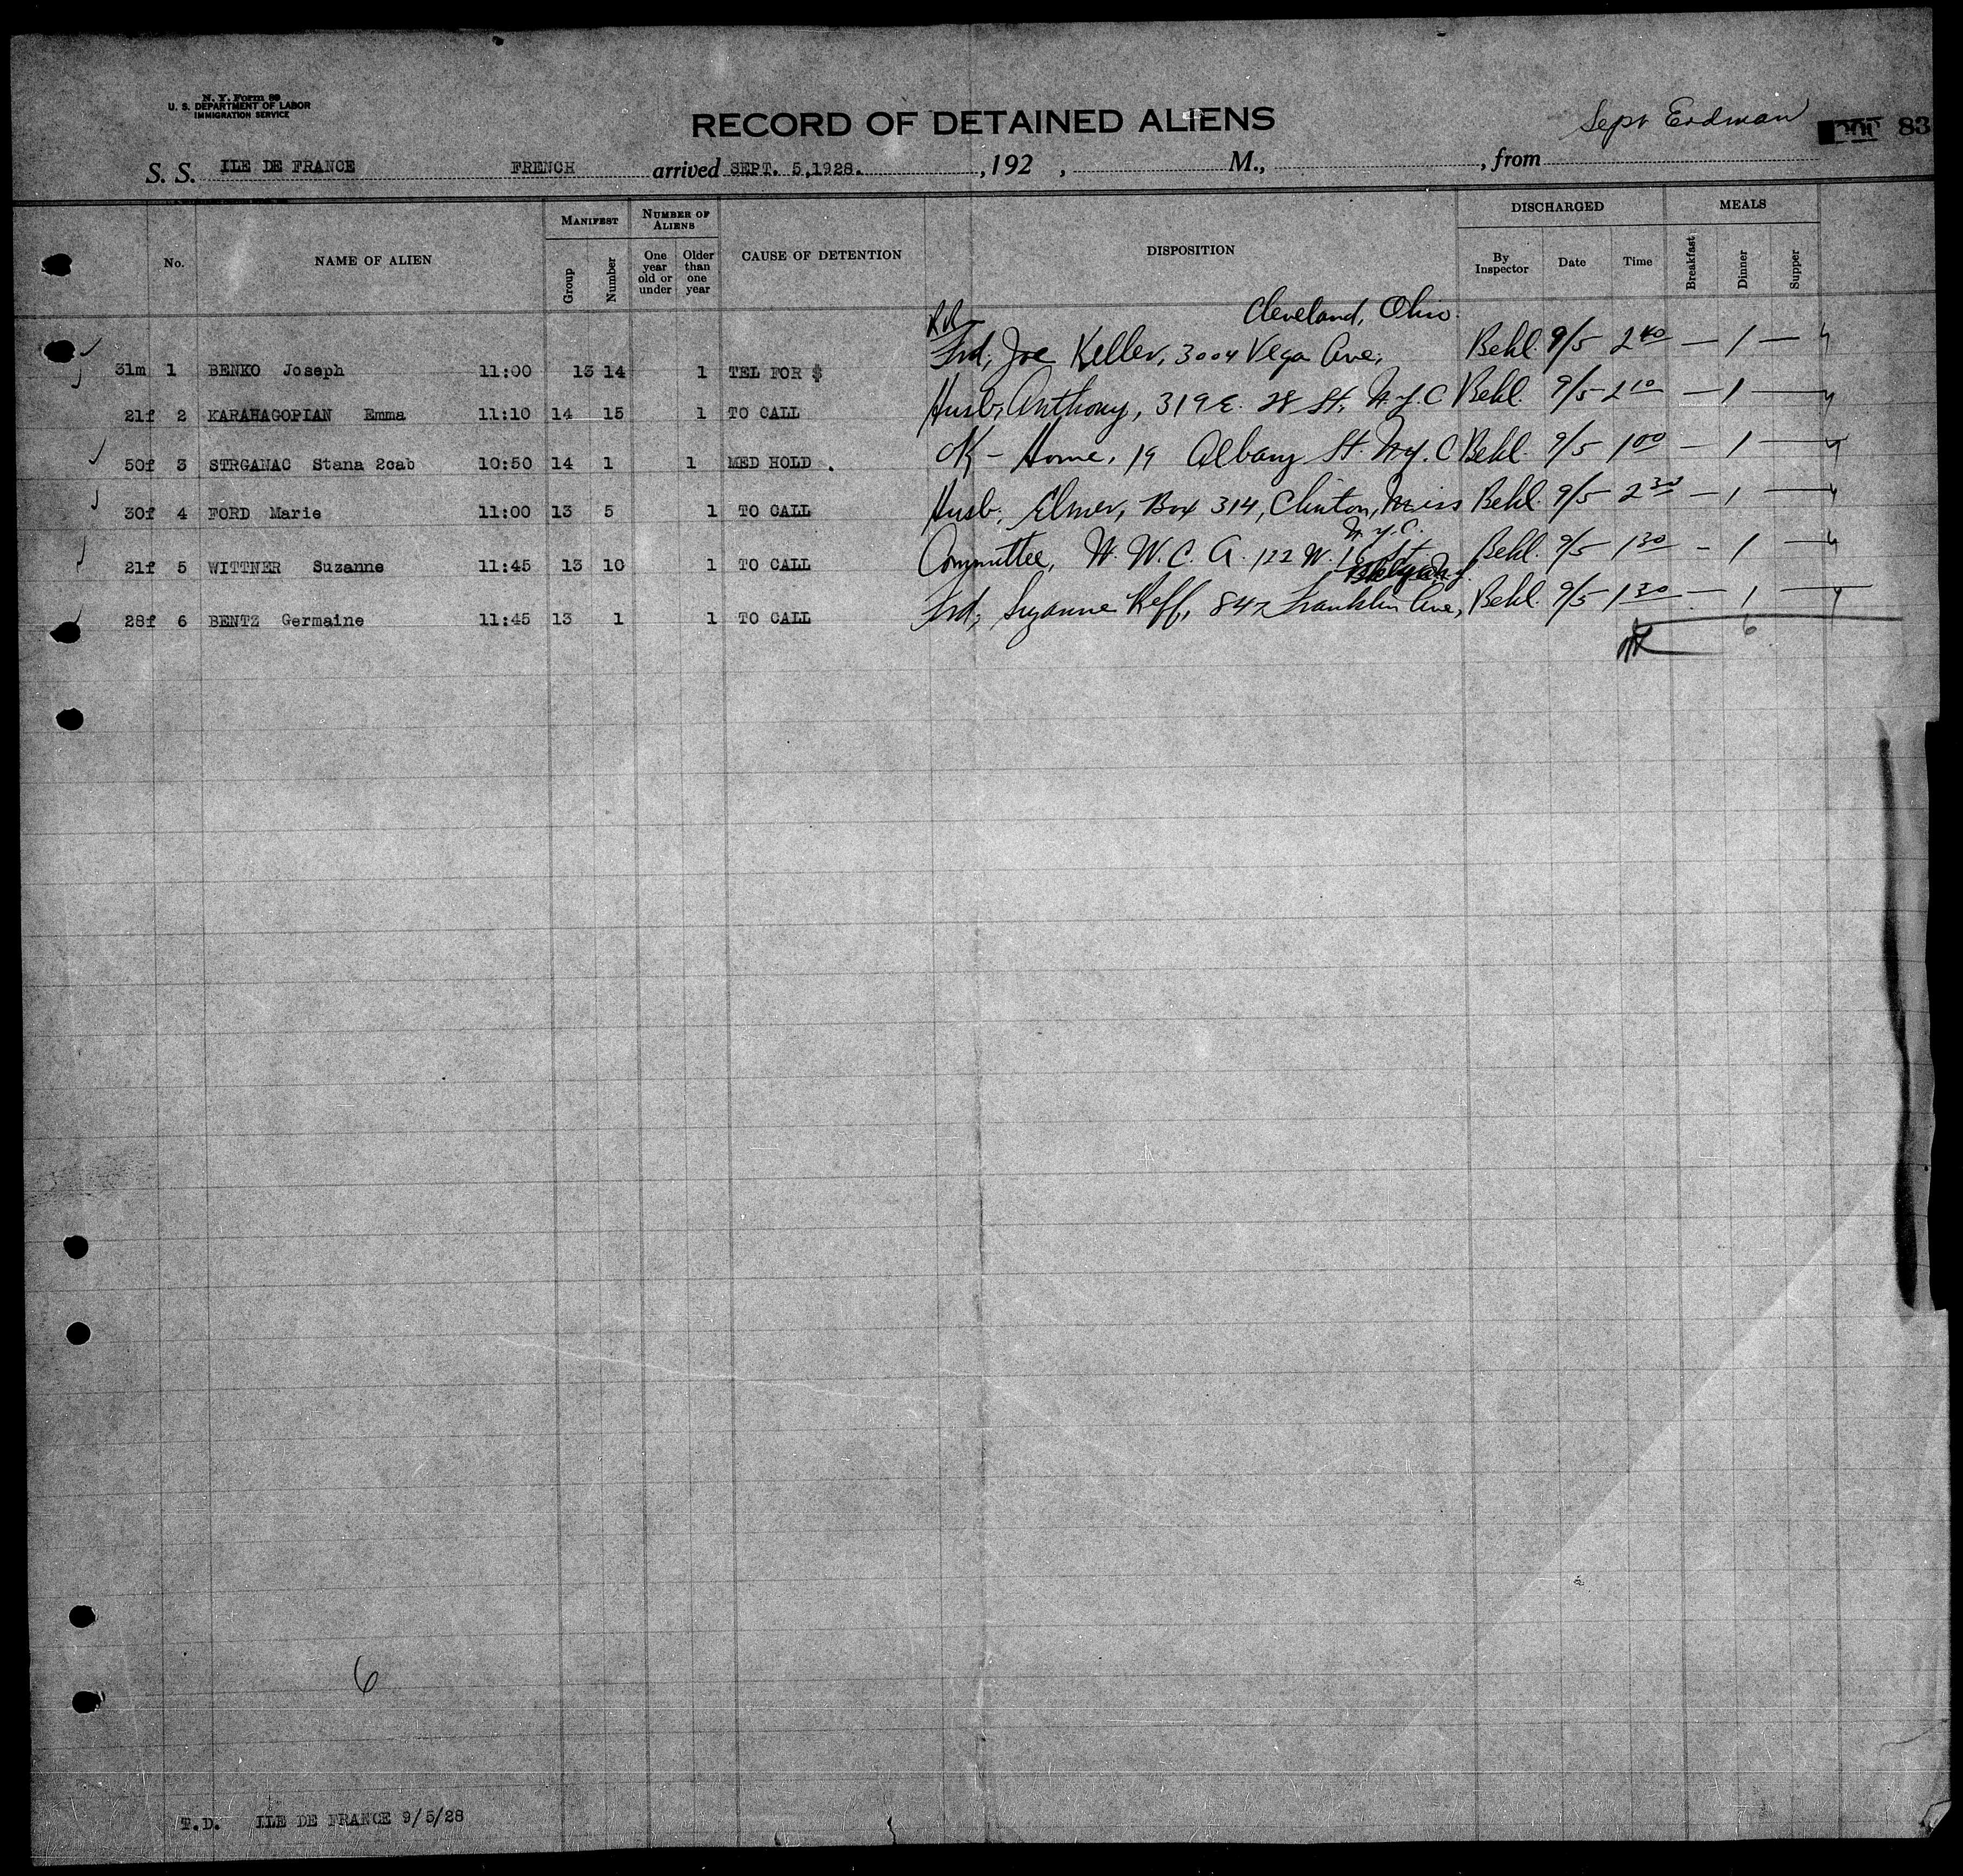 N. Y. Form 89
U. S. DEPARTMENT OF LABOR
IMMIGRATION SERVICE
RECORD OF DETAINED ALIENS
Sept Erdman
83
S. S. ILE DE FRANCE FRENCH arrived SEPT. 5,1928. ,192 , M., , from
No. NAME OF ALIEN MANIFEST NUMBER OF ALIENS CAUSE OF DETENTION DISPOSITION DISCHARGED MEALS
Group Number One year old or under Older than one year By Inspector Date Time Breakfast Dinner Supper
RR Cleveland, Ohio.
31m 1 BENKO Joseph 11:00 13 14 1 TEL FOR $ Frd, Joe Keller, 3004 Vega Ave, Behl. 9/5 2 40 — 1 —
21f 2 KARAHAGOPIAN Emma 11:10 14 15 1 TO CALL Husb, Anthony, 319 E. 28 St, N.Y.C Behl. 9/5 2 10 — 1 —
50f 3 STRGANAC Stana 2cab 10:50 14 1 1 MED HOLD . OK – Home, 19 Albany St. N.Y.C Behl. 9/5 1 00 — 1 —
30f 4 FORD Marie 11:00 13 5 1 TO CALL Husb, Elmer, Box 314, Clinton, Miss Behl. 9/5 2 30 — 1 —
N.Y.C.
21f 5 WITTNER Suzanne 11:45 13 10 1 TO CALL Committee, W. W. C. A. 122 W. 16 St. Behl. 9/5 1 30 – 1 —
28f 6 BENTZ Germaine 11:45 13 1 1 TO CALL Frd, Suzanne Keff, 847 Franklin Ave, Behl. 9/5 1 30 — 1 —
6
6
T.D. ILE DE FRANCE 9/5/28